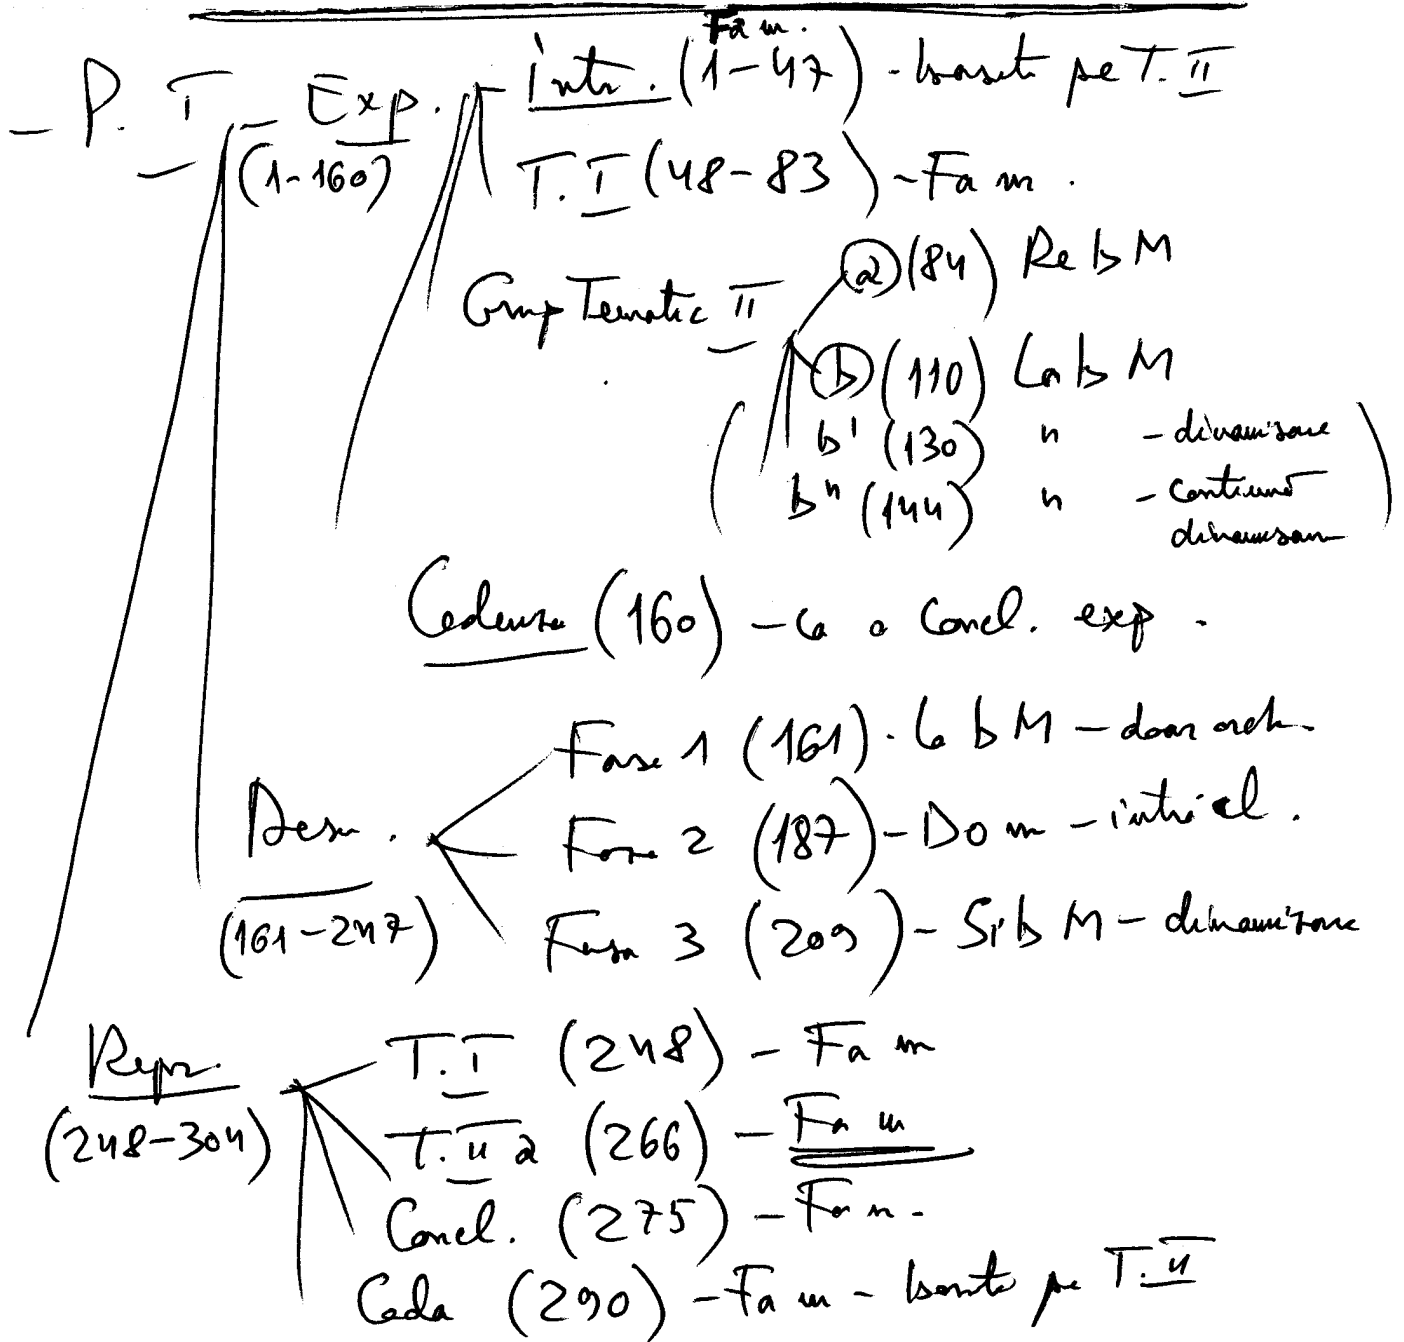 Fa m.
- P. I - Exp. - intr. (1-47) - bazată pe T. II
(1-160) T. I (48-83) - Fa m.
Grup Tematic II a (84) Re b M
b (110) La b M
(b' (130) " - dinamizare
b" (144) " - continuă
dinamizarea)
Cadenza (160) - ca o concl. exp.
Faza 1 (161) - La b M - doar orch.
Dezv. Faza 2 (187) - Do m - intră cl.
(161-247) Faza 3 (209) - Si b M - dinamizare
Repr. T. I (248) - Fa m
(248-304) T. II a (266) - Fa m
Concl. (275) - Fa m.
Coda (290) - Fa m - bazată pe T. II